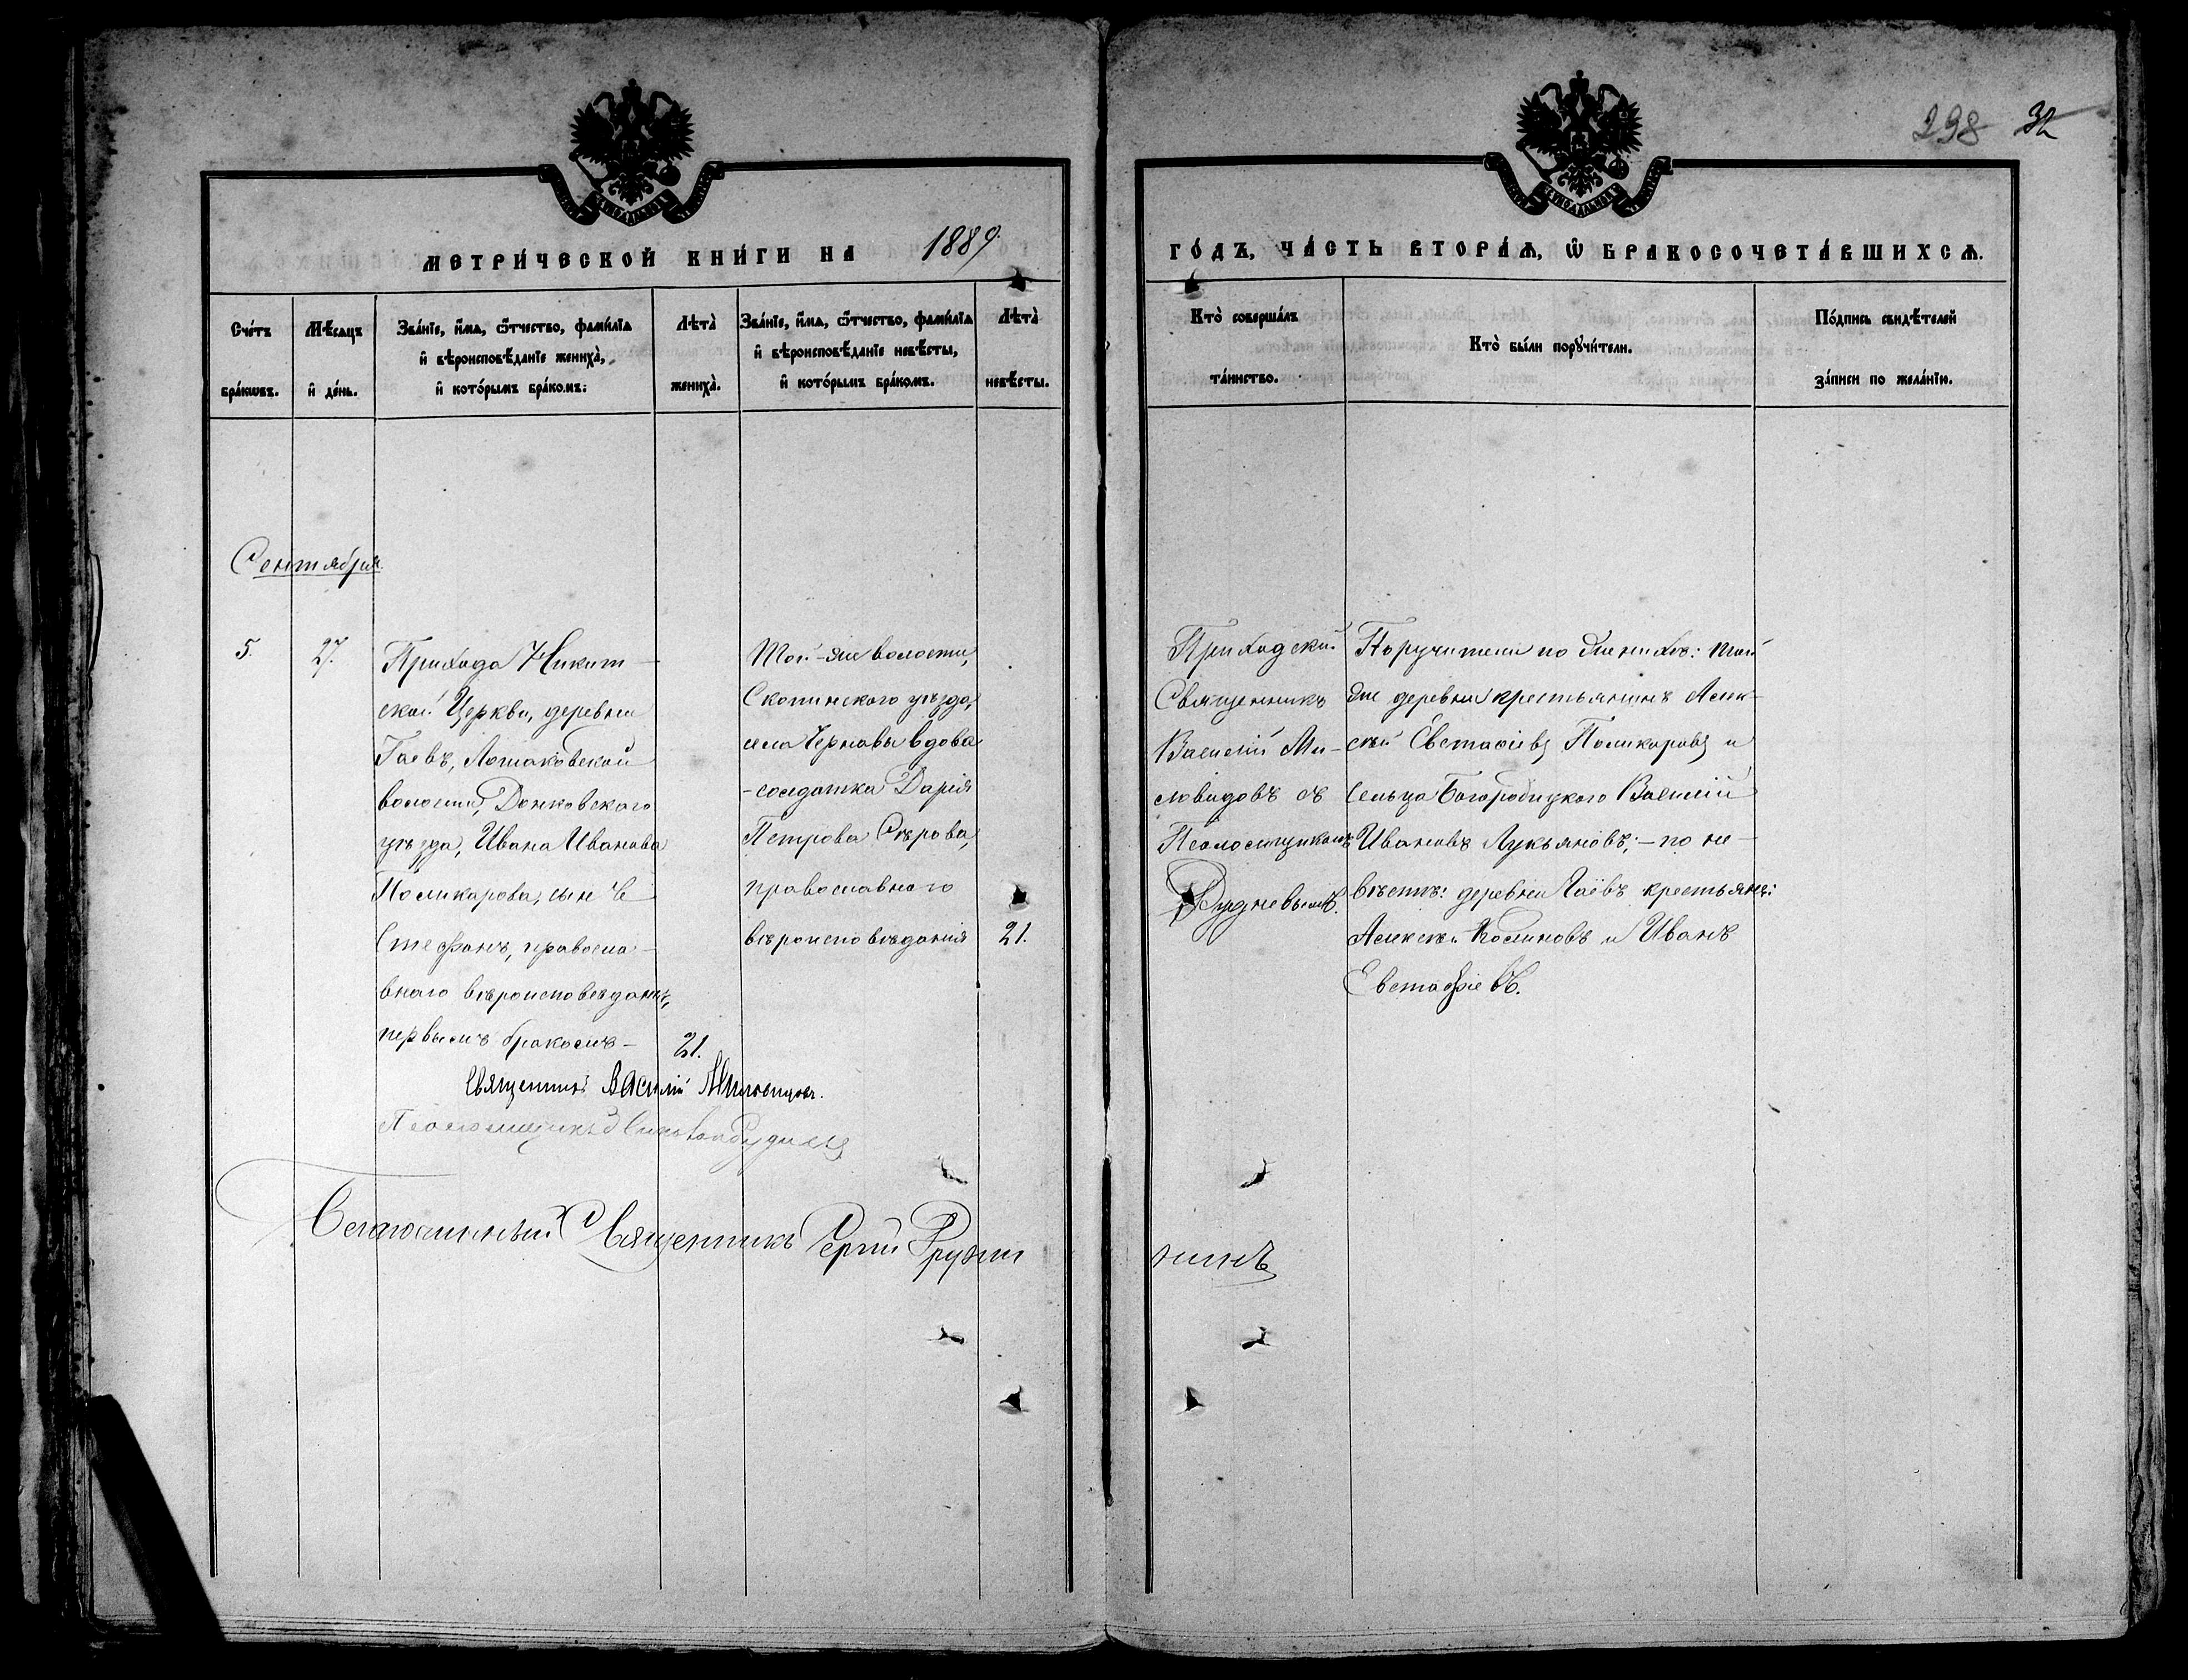 298 32
МЕТРИ́ЧЕСКОЙ КНИ́ГИ НА 1889.
ГО́ДЪ, ЧА́СТЬ ВТОРА́Ѧ, Ѿ БРАКОСОЧЕТА́ВШИХСѦ.
Сче́тъ
бра́кѡвъ.
Мѣ́сѧцъ
и҆ де́нь.
Зва́нїе, и҆́мѧ, ѻ҆́тчество, фами́лїѧ
и҆ вѣроисповѣ́данїе жениха̀,
и҆ кото́рымъ бра́комъ:
Лѣта̀
жениха̀.
Зва́нїе, и҆́мѧ, ѻ҆́тчество, фами́лїѧ
и҆ вѣроисповѣ́данїе невѣ́сты,
и҆ кото́рымъ бра́комъ.
Лѣта̀
невѣ́сты.
Кто̀ соверша́лъ
та́инство.
Кто̀ бы́ли порꙋчи́тели.
По́дпись свидѣ́телей
за́писи по жела́нїю.
Сентября
5.
27.
Прихода Никит-
ской Церкви, деревни
Гаевъ, Лошаковской
волости, Донковского
уѣзда, Ивана Иванова
Поликарова, сынъ
Стефанъ, правосла-
внаго вѣроисповѣданія,
первымъ бракомъ-
21.
Той-же волости,
Скопинского уѣзда,
села Чернавы вдова
-солдатка Дарія
Петрова Сѣрова,
православного
вѣроисповѣданія
21.
Приходский
Священникъ
Василій Ми-
ловидовъ съ
Псаломщикомъ
Рудневымъ.
Поручители по женихѣ: той
же деревни крестьянинъ Алек-
сѣй Евстафіевъ Поликаровъ и
сельца Богородицкого Василій
Ивановъ Лукьяновъ; - по не-
вѣстѣ: деревни Гаевъ крестьяне:
Алексѣй Коликовъ и Иванъ
Евстафіевъ.
Священникъ Василій Миловидовъ.
Псаломщикъ
Благочинный Священникъ Сергій Фрухти
нинъ